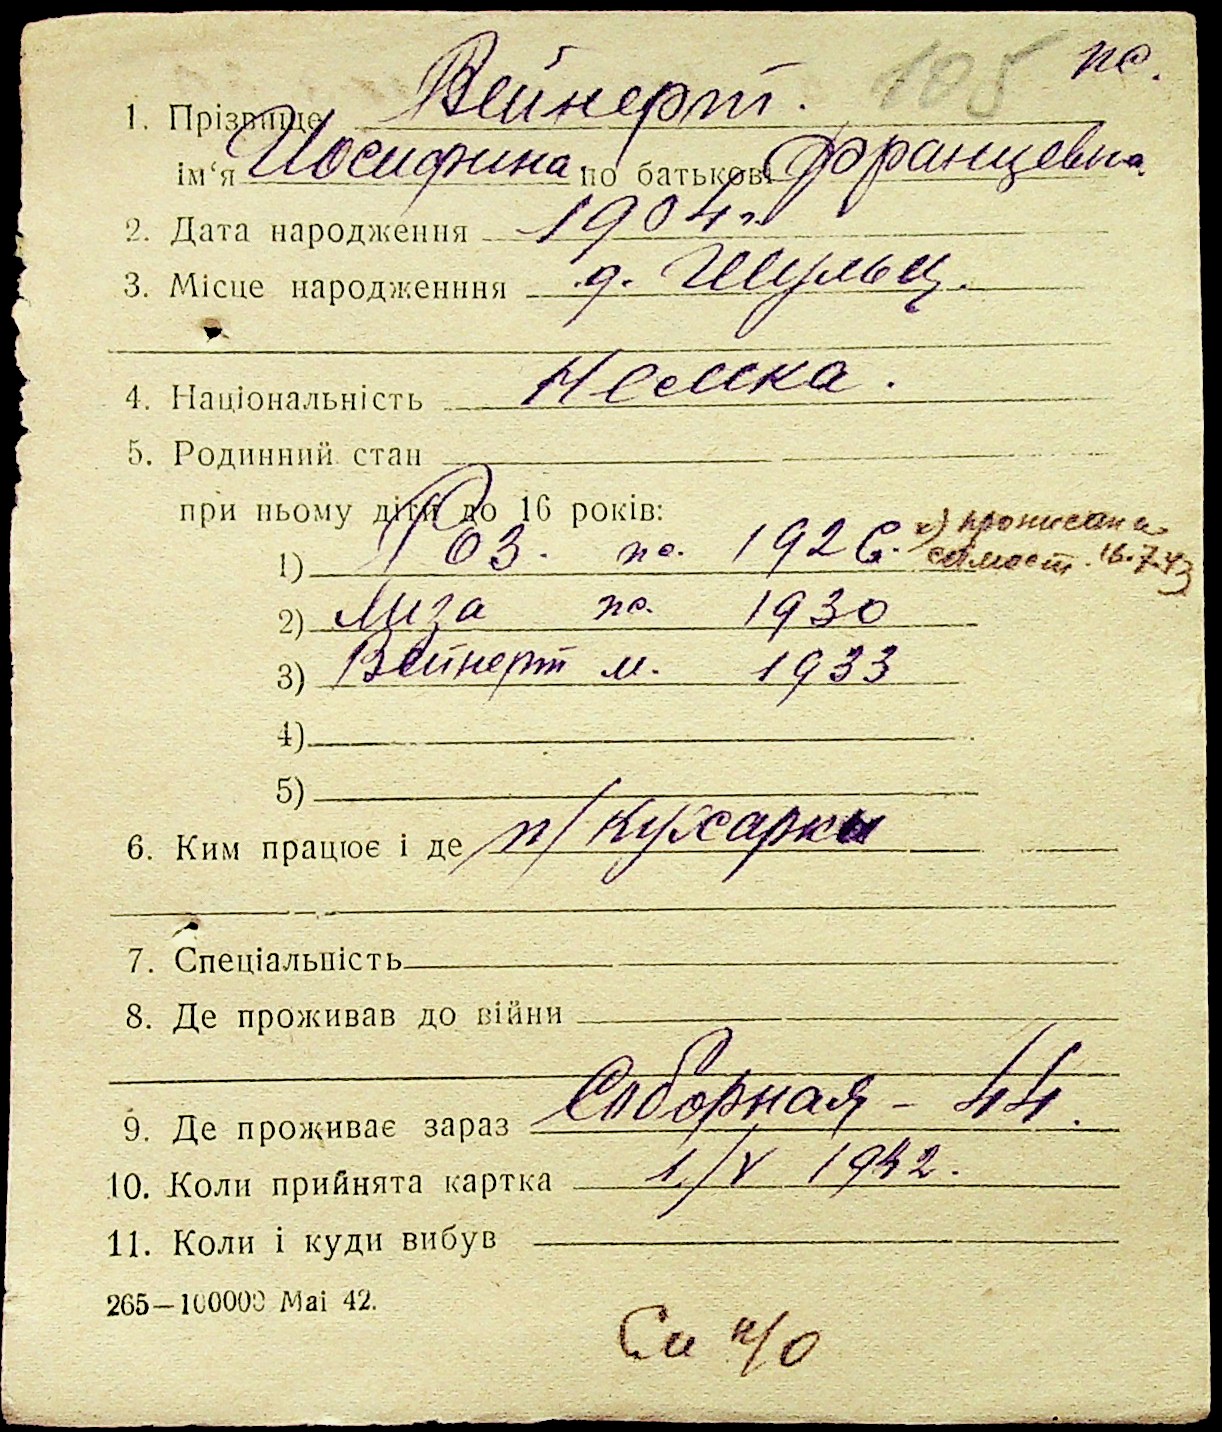 105 жс.
1. Прізвище Вейнерт.
ім'я Иосифина по батькові Францевна
2. Дата народження 1904 г.
3. Місце народженння д. Шульц.
4. Національність Немка.
5. Родинний стан
при ньому діти до 16 років:
1) Роз. жс. 1926. х) прописана
самост. 16.7.43
2) Лиза жс. 1930
3) Вейнерт м. 1933
4)
5)
6. Ким працює і де п/кухарки
7. Спеціальність
8. Де проживав до війни
9. Де проживає зараз Соборная - 44.
10. Коли прийнята картка 1/V 1942.
11. Коли і куди вибув
265—100000 Mai 42.
См н/о